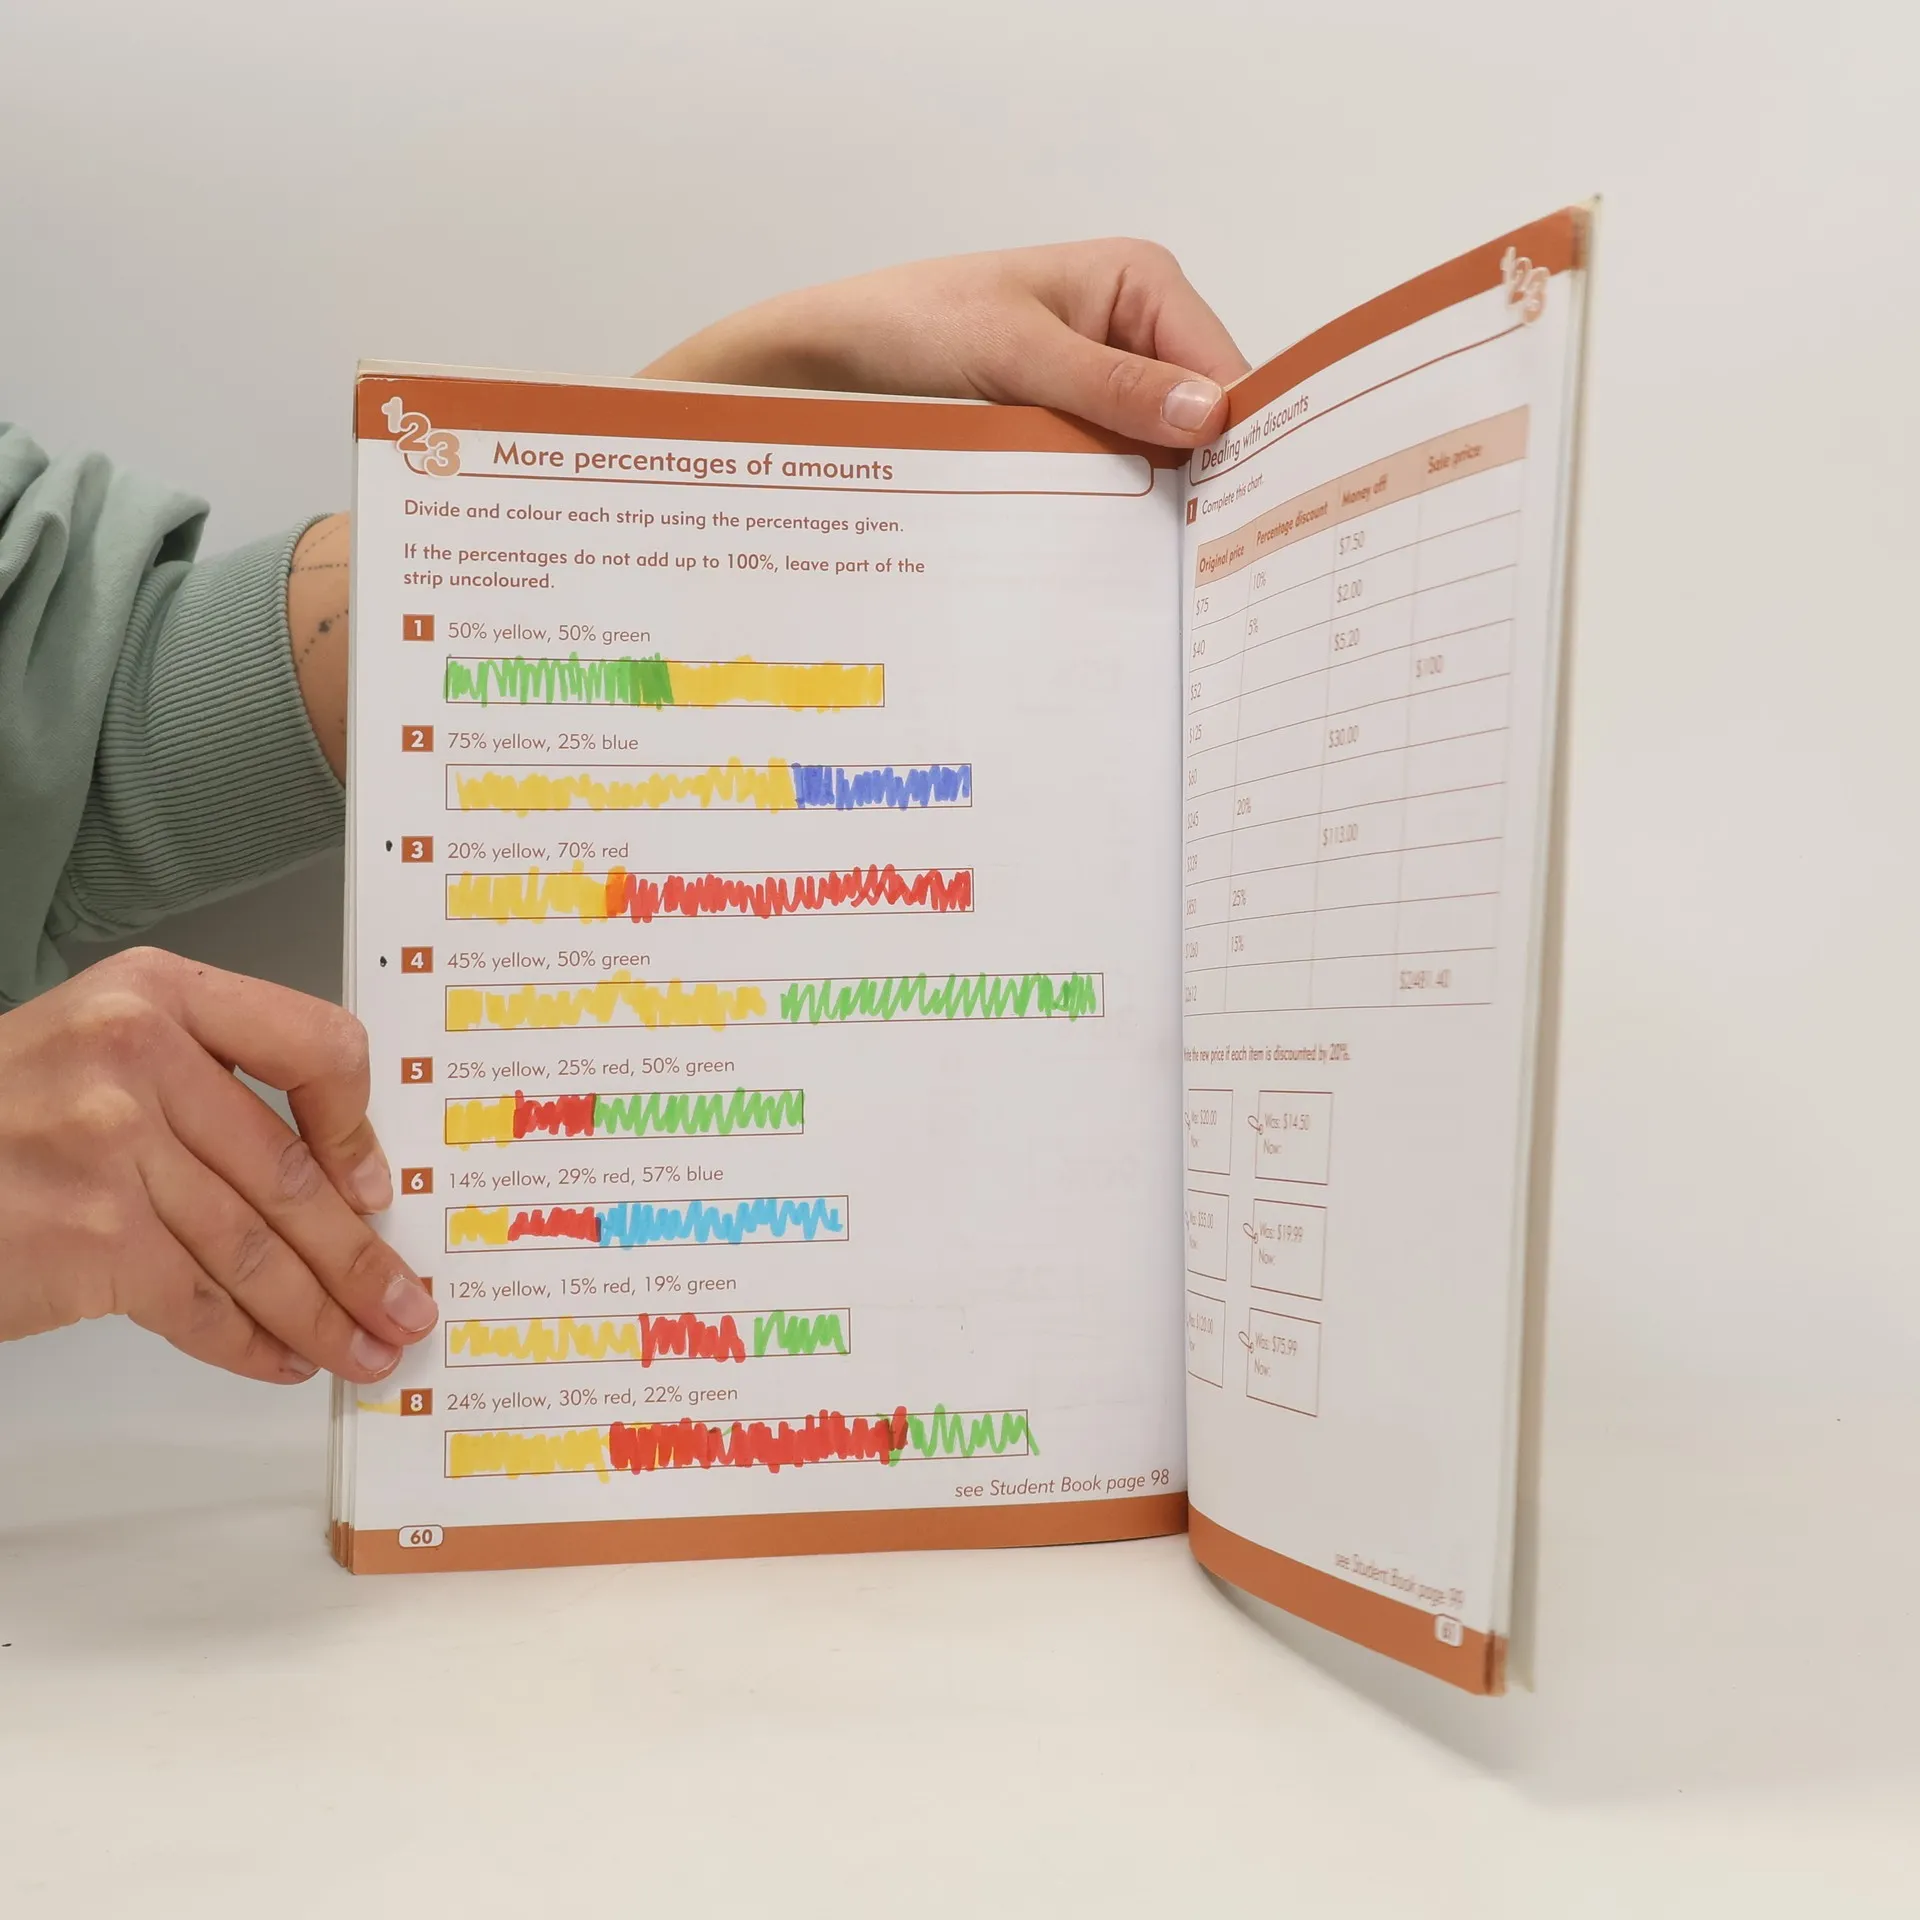 123
More percentages of amounts
Divide and colour each strip using the percentages given.
If the percentages do not add up to 100%, leave part of the
strip uncoloured.
1 50% yellow, 50% green
2 75% yellow, 25% blue
3 20% yellow, 70% red
4 45% yellow, 50% green
5 25% yellow, 25% red, 50% green
6 14% yellow, 29% red, 57% blue
12% yellow, 15% red, 19% green
8 24% yellow, 30% red, 22% green
see Student Book page 98
60
123
Dealing with discounts
1 Complete this chart.
Original price Percentage discount Money off Sale price
$75 10% $7.50
$40 5% $2.00
$52 $5.20
$125 $100
$60 $30.00
$245 20%
$113.00
$850 25%
15%
$2481.40
the new price if each item is discounted by 20%.
Was: $20.00 Was: $14.50
Now: Now:
Was: $55.00 Was: $19.99
Now: Now:
Was: $75.99
Now:
see Student Book page 99